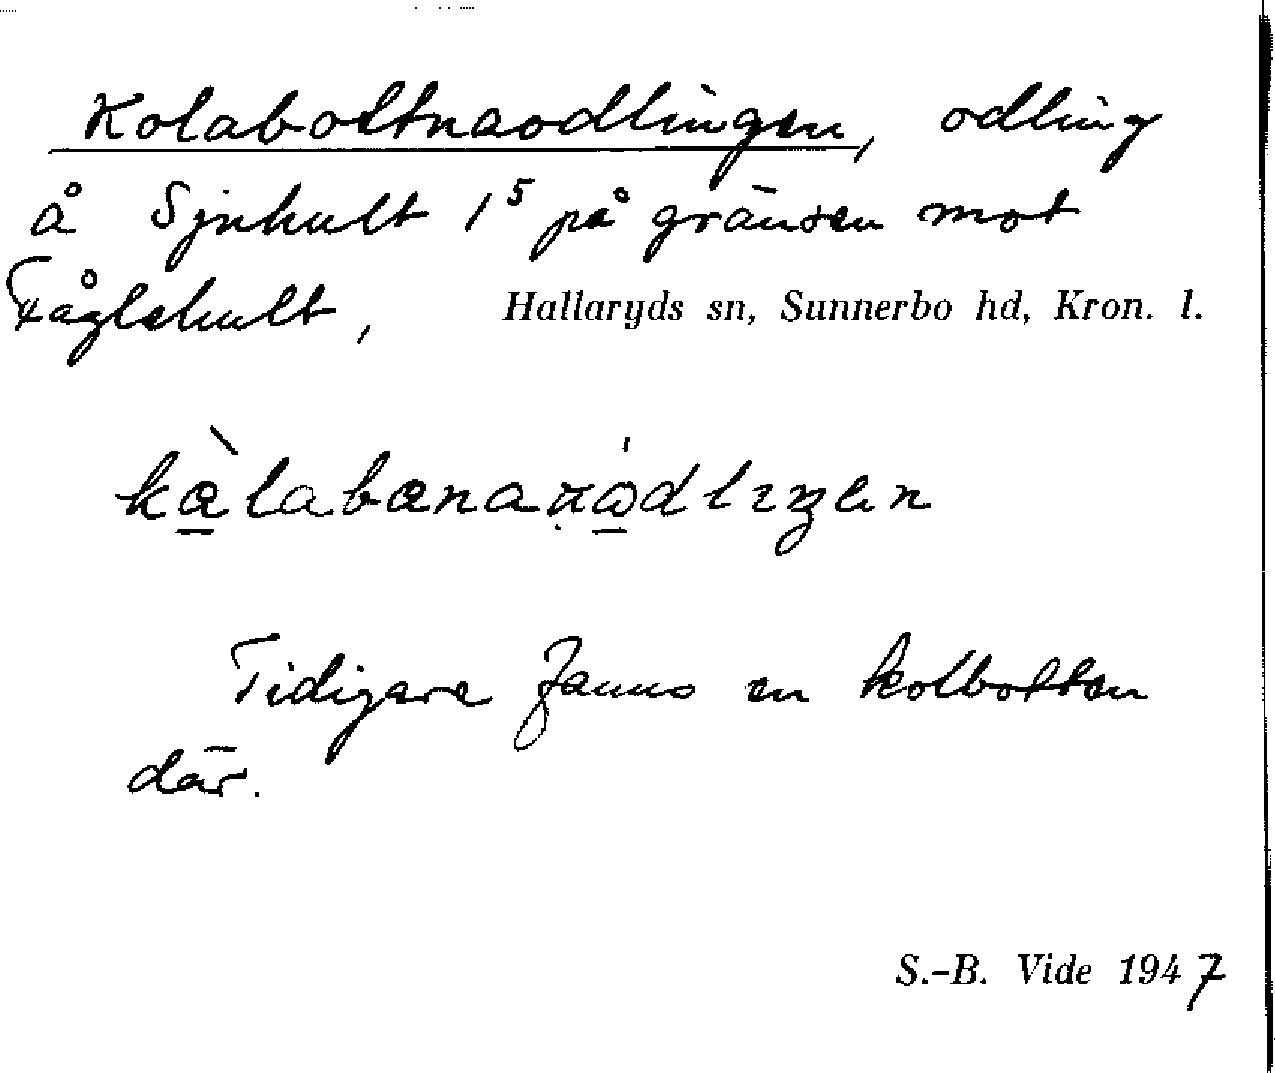 Kolabottnaodlingen, odling
å Sjnhult 1⁵ på gränsen mot
Fåglehult, Hallaryds sn, Sunnerbo hd, Kron. l.
Tidigare fanns en kolbotten
där.
S.-B. Vide 1947